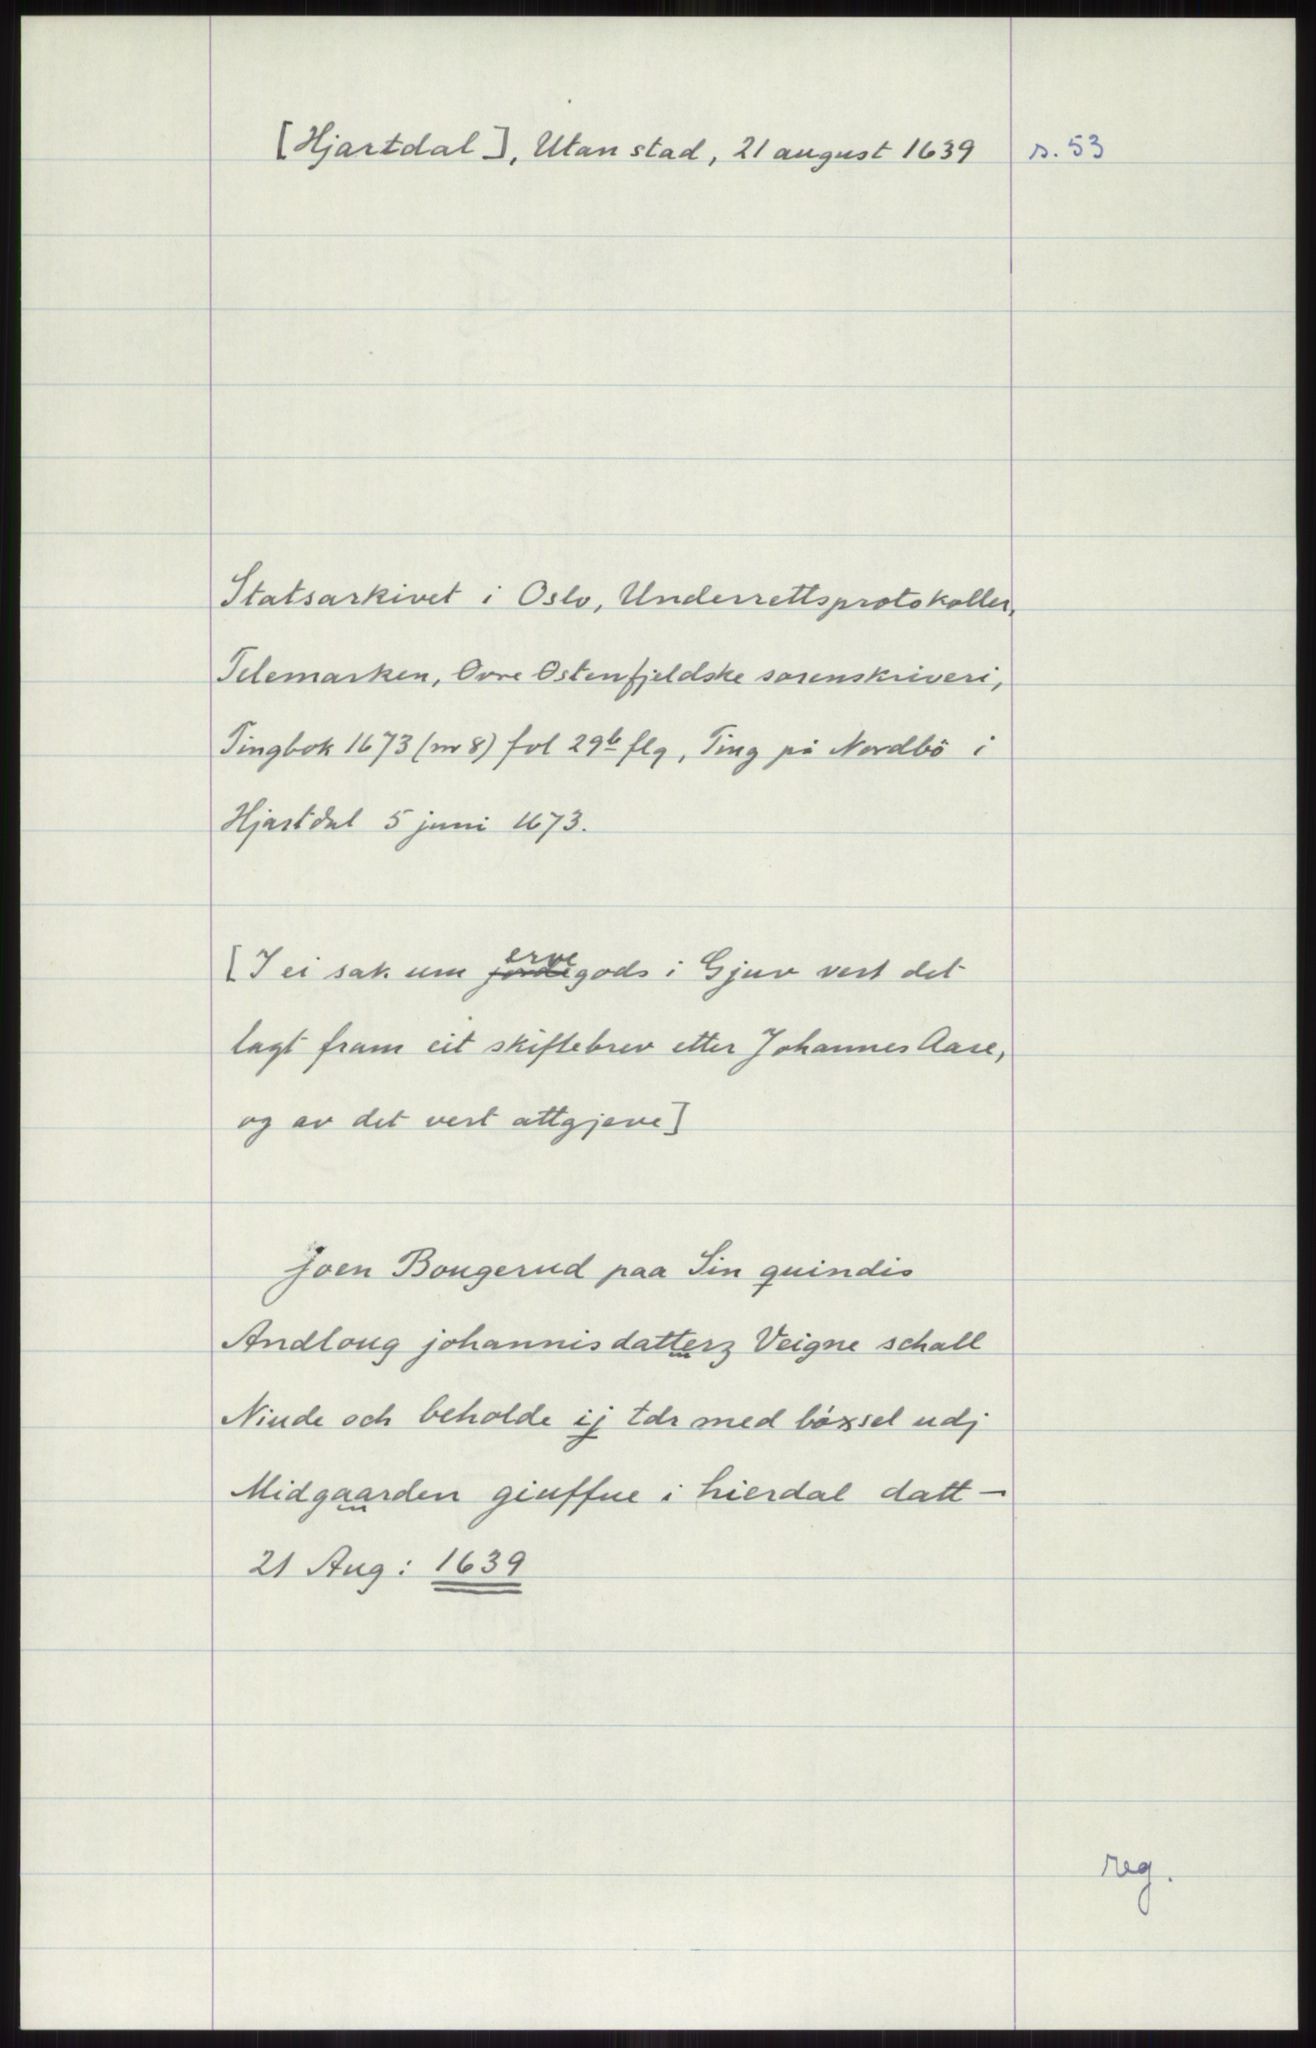 [Hjartdal], Utan stad, 21 august 1639 s. 53
Statsarkivet i Oslo, Underrettsprotokoller,
Telemarken, Øvre Østenfjeldske sorenskriveri,
Tingbok 1673 (nr 8) fol 29b flg, Ting på Nordbö i
Hjartdal 5 juni 1673.
[I ei sak um jorde erve gods i Gjuv vert det
lagt fram eit skiftebrev etter Johannes Aase,
og av det vert attgjeve]
Joen Bougerud paa Sin quindis
Andloug johannisdatterz Veigne schall
Niude och beholde ij tdr med bóxsel udj
Midgaarden giuffue i hierdal datt –
21 Aug: 1639
reg.